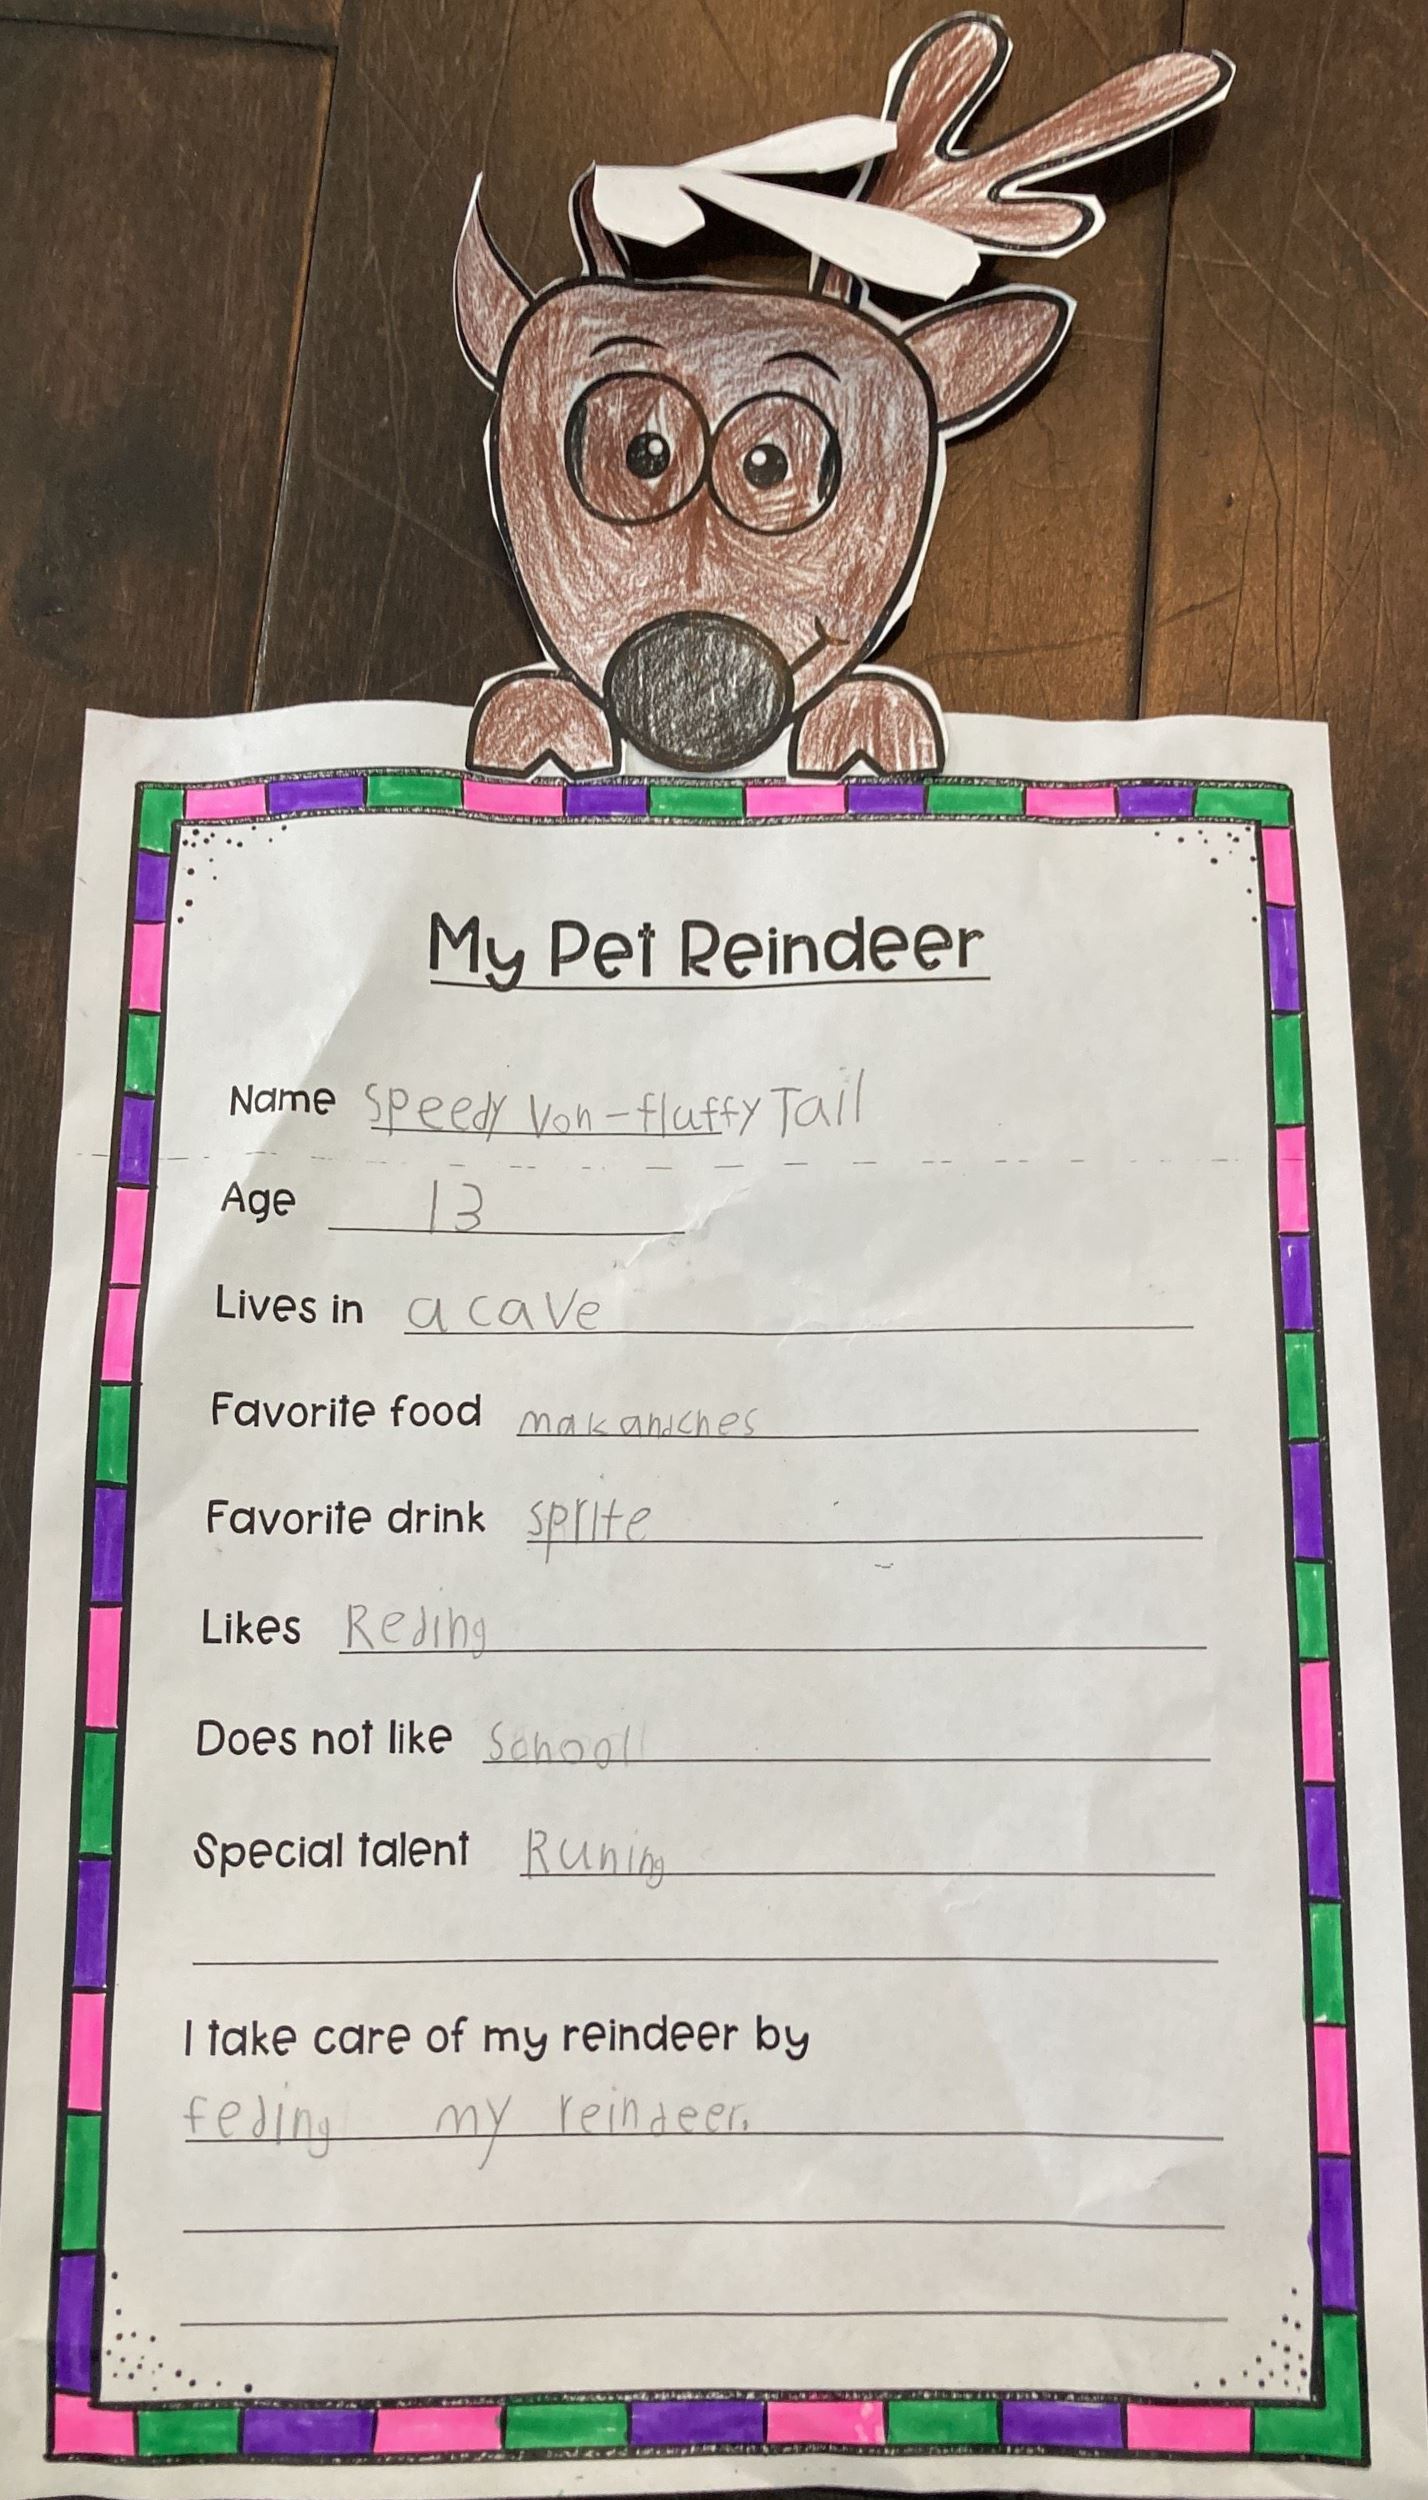 My Pet Reindeer
Name Speedy Von-fluffy Tail
Age 13
Lives in a cave
Favorite food makandches
Favorite drink sprite
Likes Reding
Does not like School
Special talent Runing
I take care of my reindeer by
feding my reindeer.